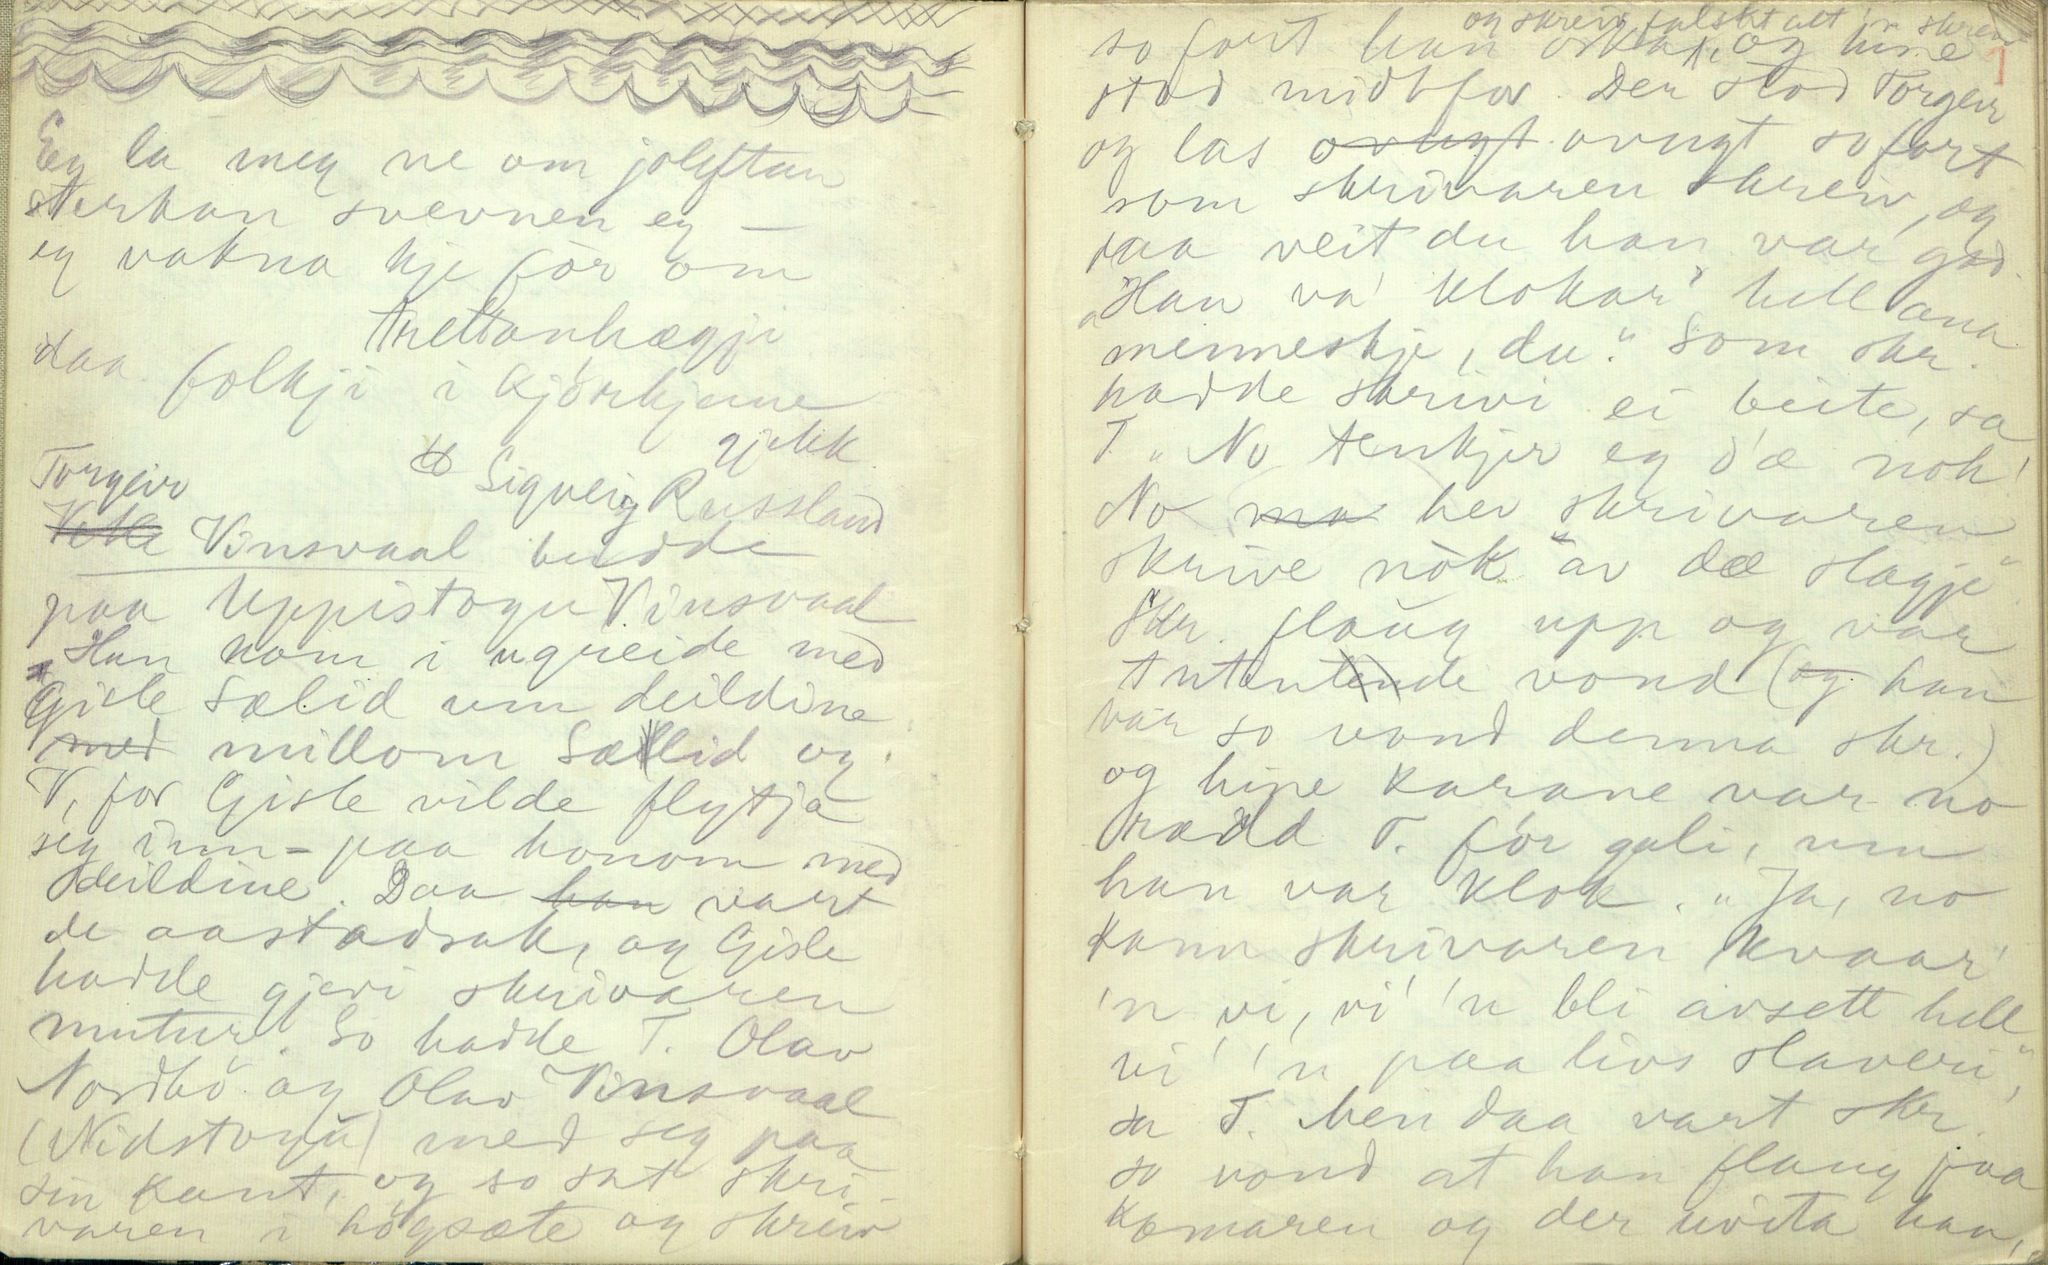 Eg la meg ne om joleftan
sterkan svevnen eg —
eg vakna kje för om
Trettanhægji
daa folkji i kjörkjune
gjekk
Sigveig Russland
Torgeir
Vetle Vinsvaal budde
paa Uppistogu Vinsvaal
Han kom i ugreide med
Gisle Sælid um deildine
med millom Sælid og
V, for Gisle vilde flytja
seg inn-paa honom med
deildine. Daa han vart
de aastadsak, og Gisle
hadde gjevi skrivaren
mutur. So hadde T. Olav
Nordbö og Olav Vinsvaal
(Nidstogu) med seg paa
sin kant, og so sat skri-
varen i högsæte og skreiv
og skreiv falskt alt 'n skreiv
so fort han orka, og hine
stod midtfor. Der stod Torgeir
og las ovugt ovugt so fort
som skrivaren skreiv, og
daa veit du han var god.
"Han va' klokar' hell ana
menneskje, du." Som skr.
hadde skrivi ei beite, sa
T. "No tenkjer eg d'æ nok!
No ma hev skrivaren
skrive nòk av dæ slagje"
Skr. flaug upp og var
tentende vond (og han
var so vond denna skr.)
og hine karane var no
rædd T. fór gali, um
han var klok. "Ja, no
kann skrivaren kvaar'
'n vi, vi' 'n bli avsett hell
vi' 'n paa livs slaveri",
sa T. Men daa vart skr.
so vond at han flaug paa
kamaren og der kvita han,